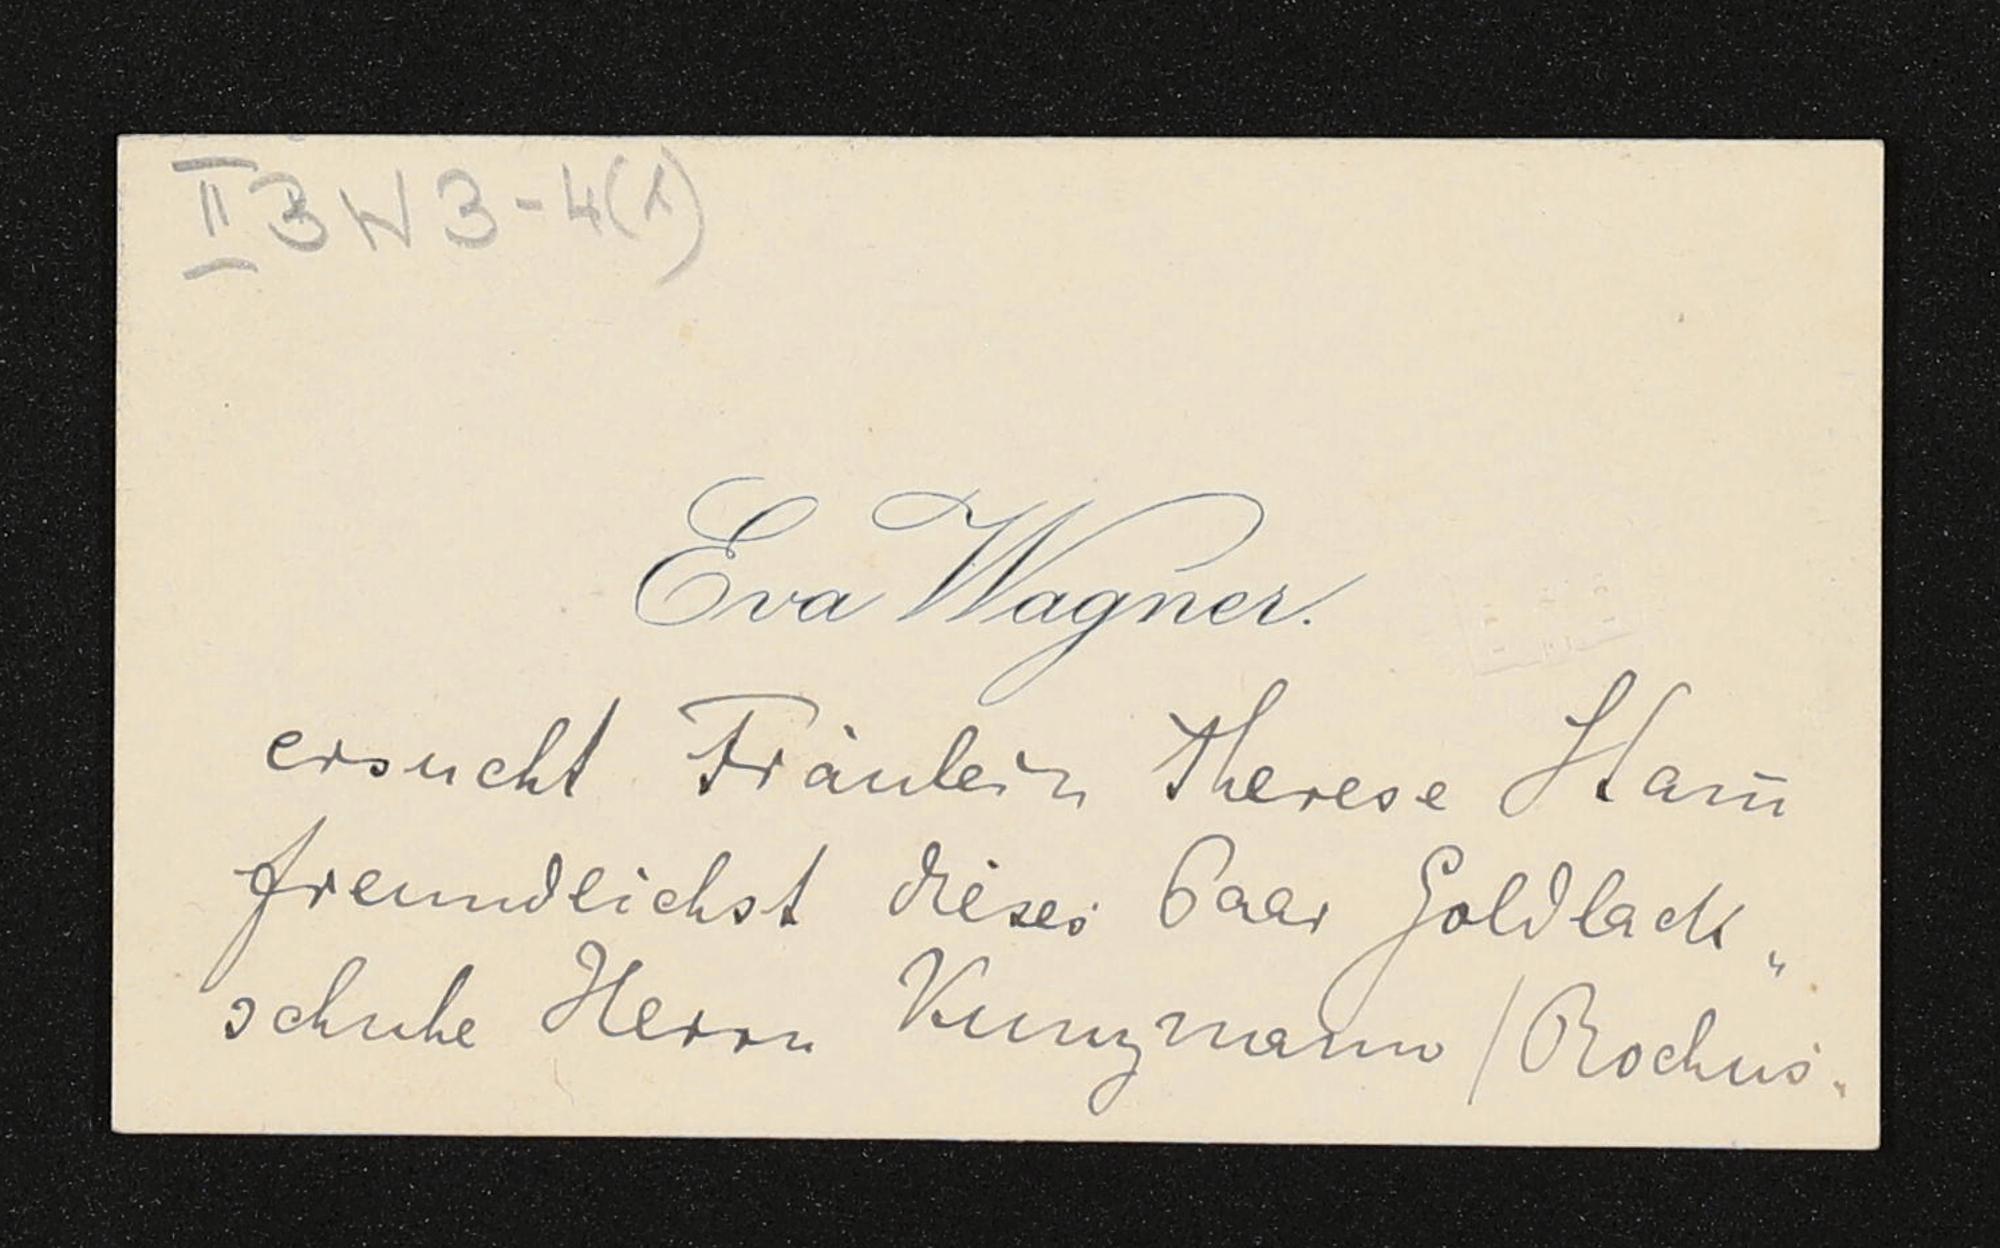 II 3 W 3-4(1)
Eva Wagner.
ersucht Fräulein Therese Ham̅
freundlichst dieses Paar Goldlack„
schuhe Herrn Kunzmann / Rochus„